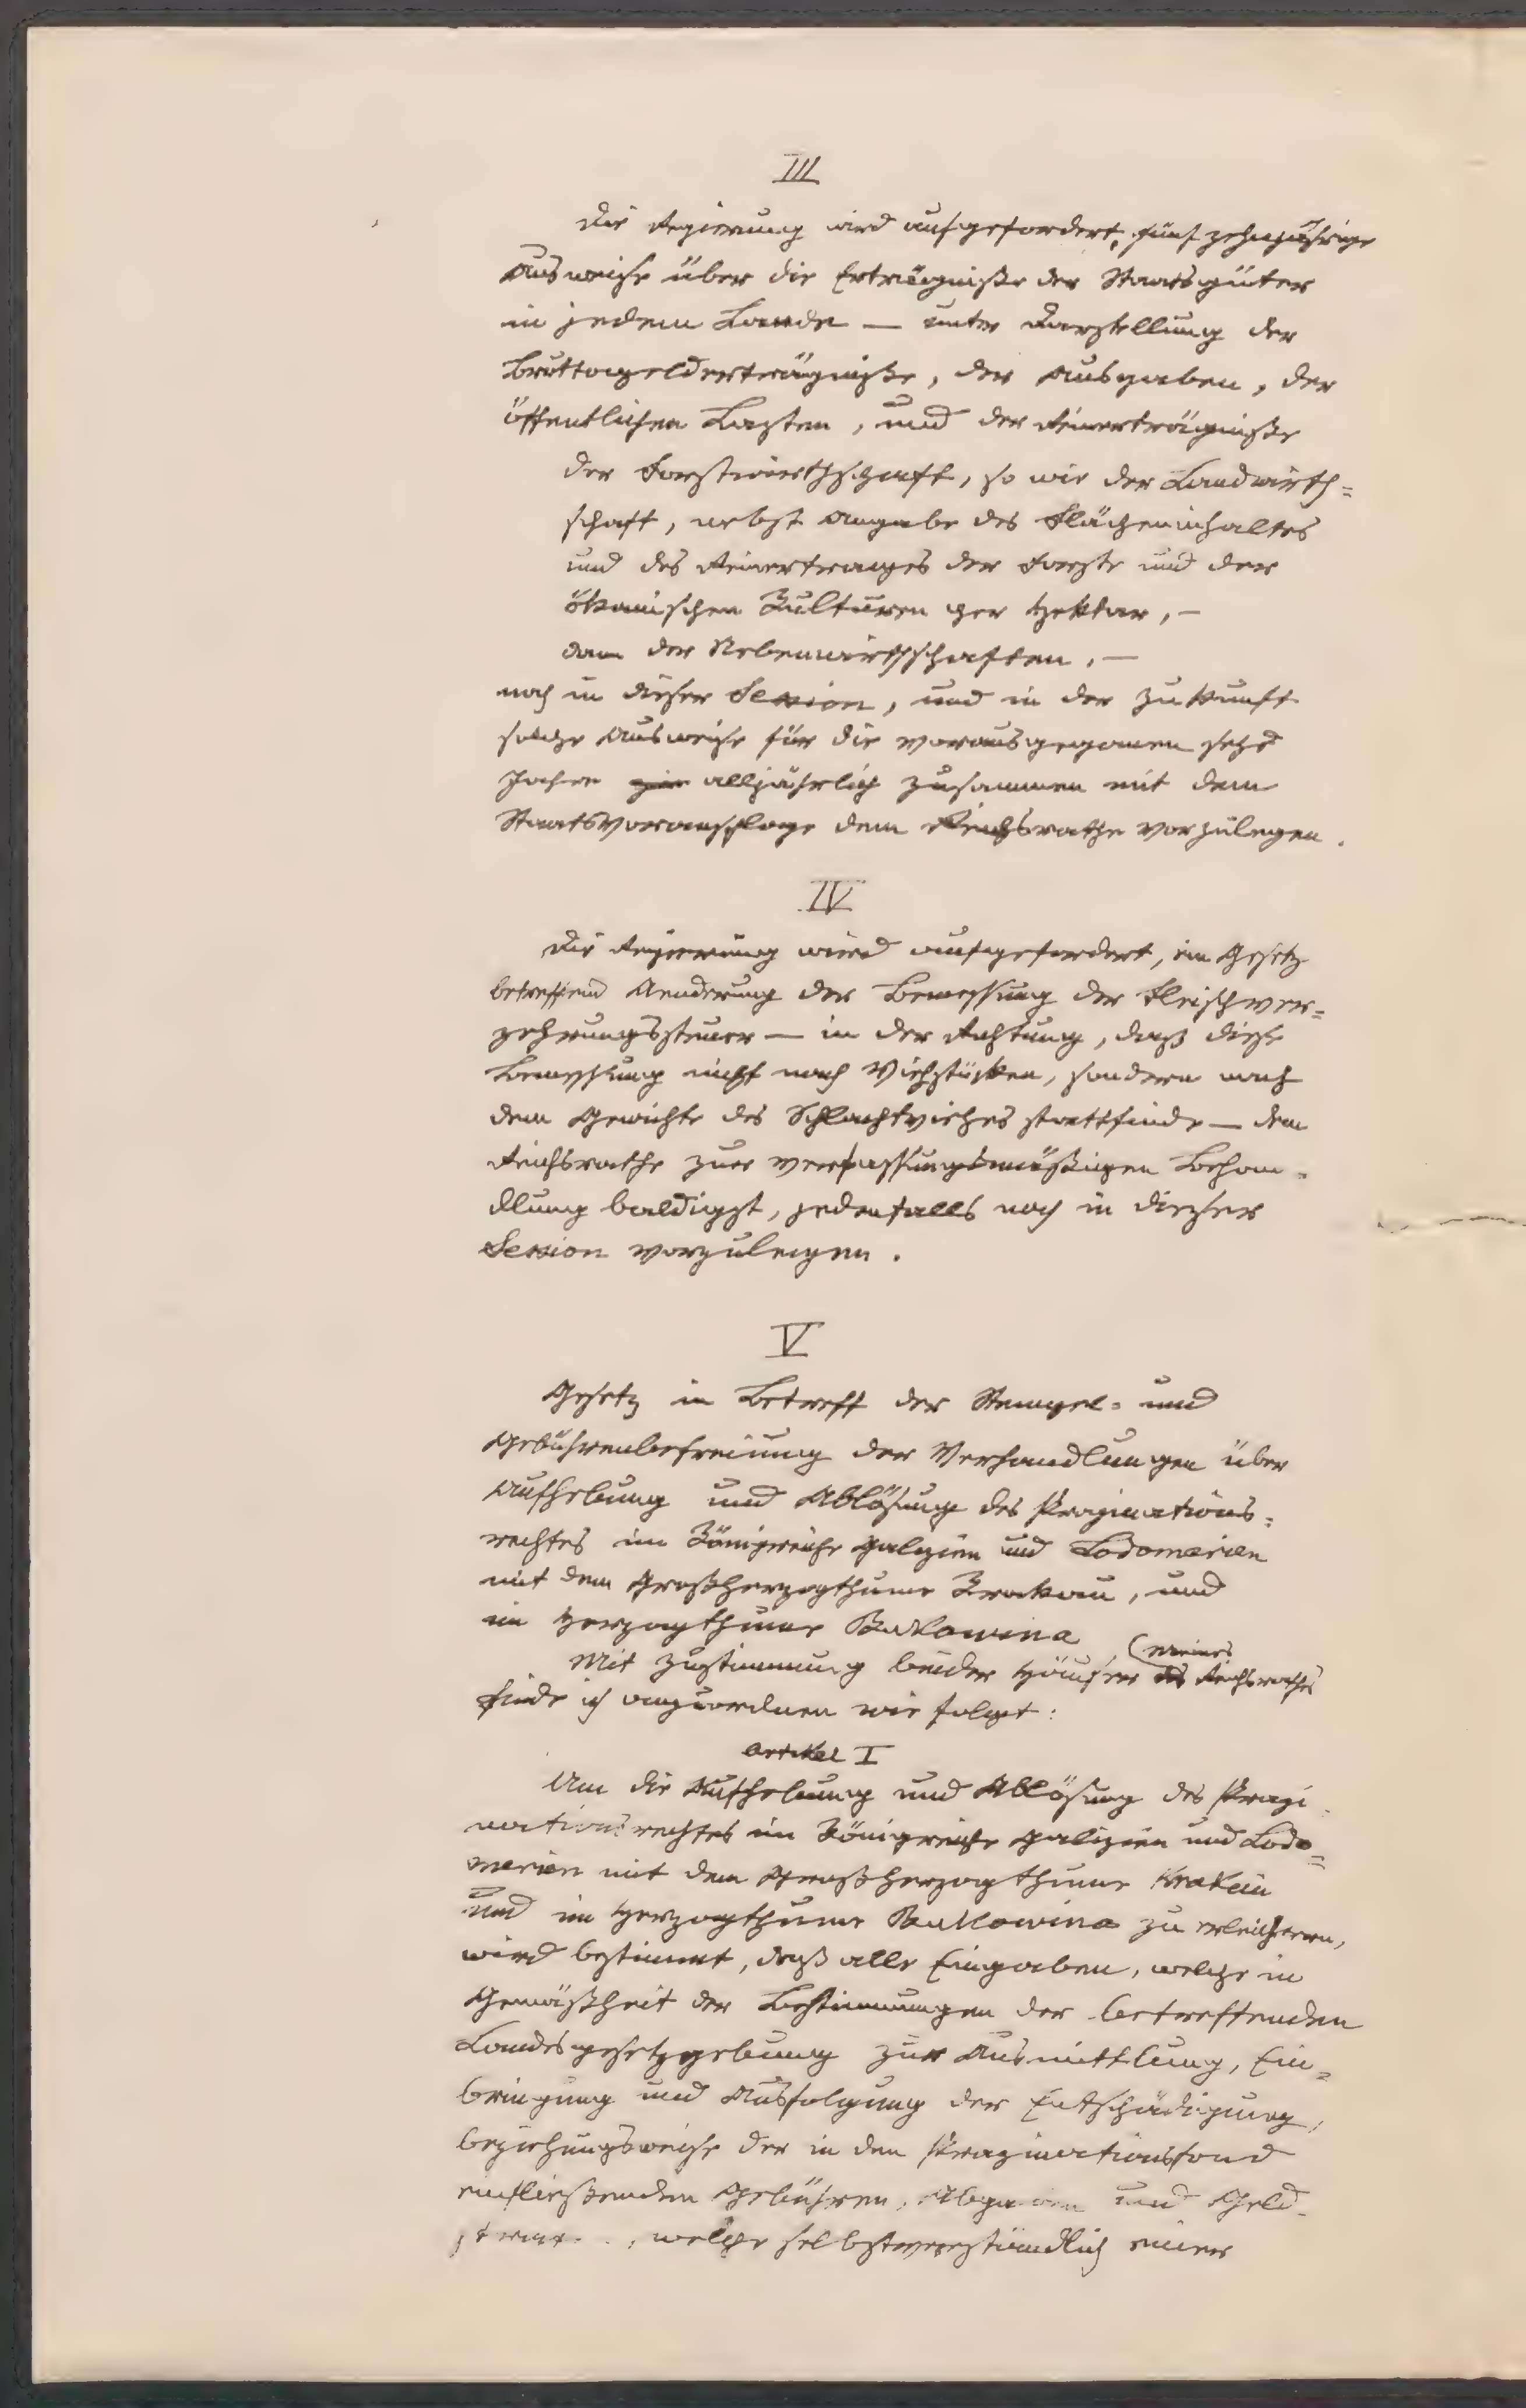 III
Die Regierung wird aufgefordert, fünfzehnjährige
Ausweise über die Erträgniße der Staatsgüter
in jedem Lande — unter Darstellung der
Bruttogelderträgniße, der Ausgaben, der
öffentlichen Lasten, und der Reinerträgniße
der Forstwirthschaft, so wie der Landwirth=
schaft, nebst Angabe des Flächeninhaltes
und des Reinertrages der Forste und der
ökonischen Kulturen per Hektar, —
dann der Nebenwirthschaften, —
noch in dieser Session, und in der Zukunft
solche Ausweise für die vorausgegangenen sechs
Jahre alljährlich zusammen mit dem
Staatsvoranschlage dem Reichsrathe vorzulegen.
IV
Die Regierung wird aufgefordert, ein Gesetz
betreffend Aenderung der Bemessung der Fleischver=
zehrungssteuer — in der Richtung, daß diese
Bemessung nicht nach Viehstücken, sondern nach
dem Gewichte des Schlachtviehes stattfinde — dem
Reichsrathe zur verfassungsmäßigen Behan=
dlung baldigst, jedenfalls noch in dieser
Session vorzulegen.
V
Gesetz in Betreff der Stempel= und
Gebührenbefreiung der Verhandlungen über
Aufhebung und Ablösung des Propinations=
rechtes im Königreiche Galizien und Lodomerien
mit dem Großherzogthume Krakau, und
im Herzogthume Bukowina
(meines
Mit Zustimmung beider Häuser des Reichsrathes
finde ich anzuordnen wie folgt:
Artikel I
Um die Aufhebung und Ablösung des Propi
nationsrechtes im Königreiche Galizien und Lodo=
merien mit dem Großherzogthume Krakau
und im Herzogthume Bukowina zu erleichtern,
wird bestimmt, daß alle Eingaben, welche in
Gemäßheit der Bestimmungen der betreffenden
Landesgesetzgebung zur Ausmittlung, Ein=
bringung und Ausfolgung der Entschädigung,
beziehungsweise der in den Propinationsfond
einfließenden Gebühren, Abgaben und Geld-
welche selbstverständlich einer